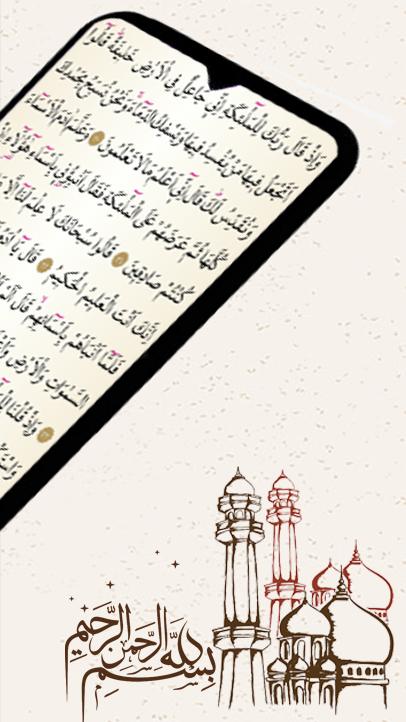 وَاِذْ قَالَ رَبُّكَ لِلْمَلٰٓئِكَةِ اِنِّيْ جَاعِلٌ فِي الْاَرْضِ خَلِيْفَةً قَالُوْٓا
اَتَجْعَلُ فِيْهَا مَنْ يُّفْسِدُ فِيْهَا وَيَسْفِكُ الدِّمَآءَ وَنَحْنُ نُسَبِّحُ بِحَمْدِكَ
وَنُقَدِّسُ لَكَ قَالَ اِنِّيْٓ اَعْلَمُ مَا لَا تَعْلَمُوْنَ ٣٠ وَعَلَّمَ اٰدَمَ الْاَسْمَآءَ
كُلَّهَا ثُمَّ عَرَضَهُمْ عَلَى الْمَلٰٓئِكَةِ فَقَالَ اَنْۢبِـُٔوْنِيْ بِاَسْمَآءِ هٰٓؤُلَآءِ
كُنْتُمْ صٰدِقِيْنَ ٣١ قَالُوْا سُبْحٰنَكَ لَا عِلْمَ لَنَآ اِلَّا
اِنَّكَ اَنْتَ الْعَلِيْمُ الْحَكِيْمُ ٣٢ قَالَ يٰٓاٰدَمُ
فَلَمَّآ اَنْۢبَاَهُمْ بِاَسْمَآئِهِمْ قَالَ
السَّمٰوٰتِ وَالْاَرْضِ
٣٣ وَاِذْ قُلْنَا
بسم الله الرحمن الرحيم